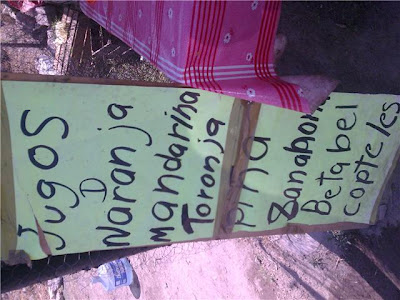 Jugos
D
Naranja
mandarina
Toronja
piña
Zanahori
Betabel
copteles